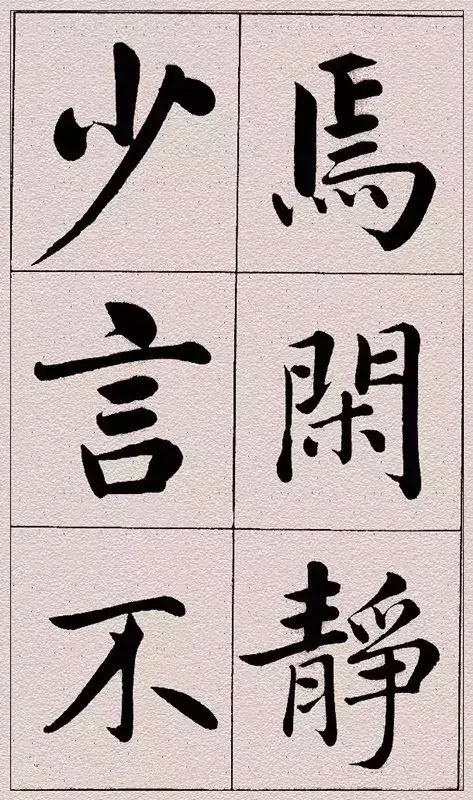 焉閑靜
少言不